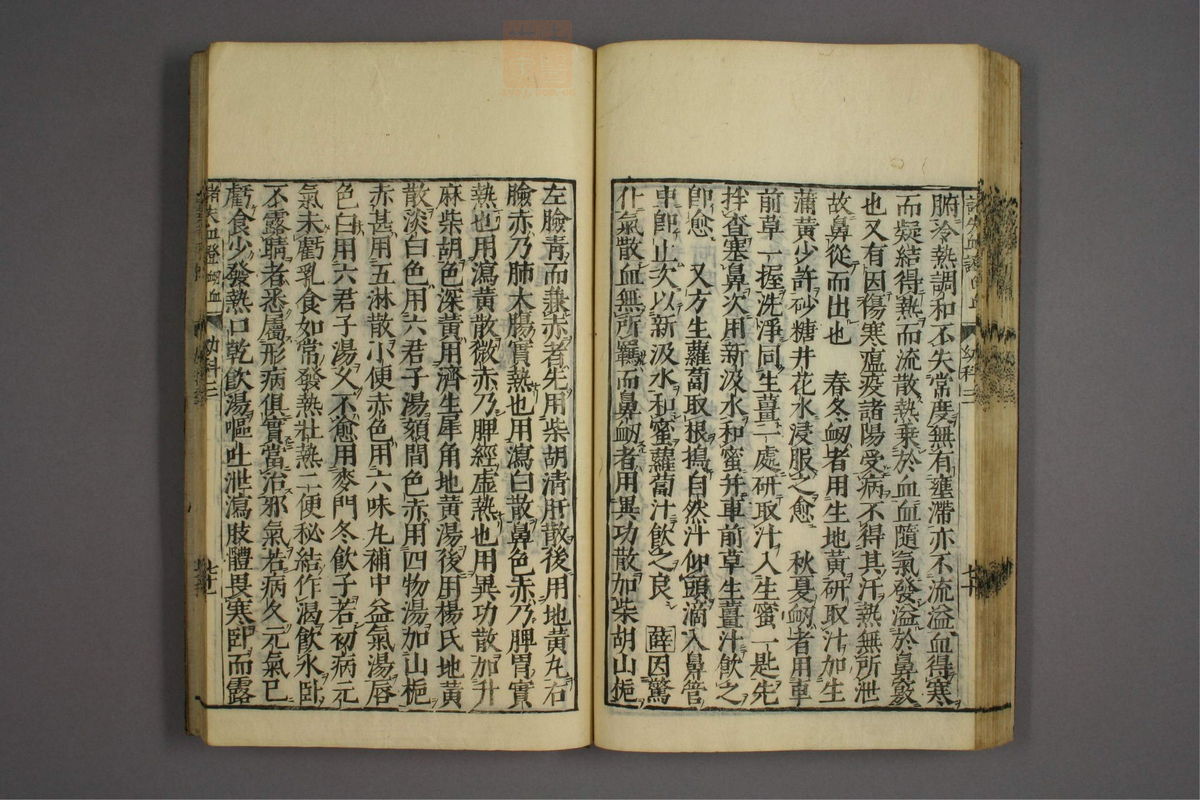 腑冷熱調和不失常度無有壅滯亦不流溢血得寒
而凝結得熱而流散熱乗於血血隨氣發溢於鼻竅
也又有因傷寒瘟疫諸陽受病不得其汗熱無所泄
故鼻從而出也 春冬衂者用生地黃研取汁加生
蒲黃少許砂糖井花水浸服之愈 秋夏衂者用車
前草一握洗淨同生薑一處研取汁入生蜜一匙先
拌査塞鼻次用新汲水和蜜并車前草生薑汁飲之
即愈 又方生蘿蔔取根搗自然汁仰頭滴入鼻管
車即止次以新汲水和蜜蘿蔔汁飲之良 薛因驚
仆氣散血無所羈而鼻衂者用異功散加柴胡山梔
左臉青而兼赤者先用柴胡清肝散後用地黃丸右
臉赤乃肺大腸實熱也用瀉白散鼻色赤乃脾胃實
熱也用瀉黃散微赤乃脾經虛熱也用異功散加升
麻柴胡色深黃用濟生犀角地黃湯後用楊氏地黃
散淡白色用六君子湯頦間色赤用四物湯加山梔
赤甚用五淋散小便赤色用六味丸補中益氣湯唇
色白用六君子湯久不愈用麥門冬飲子若初病元
氣未虧乳食如常發熱壯熱二便秘結作渴飲水臥
不露睛者悉屬形病俱實當治邪氣若病久元氣已
虧食少發熱口乾飲湯嘔吐泄瀉肢體畏寒臥而露
諸失血證衂血 幼科三